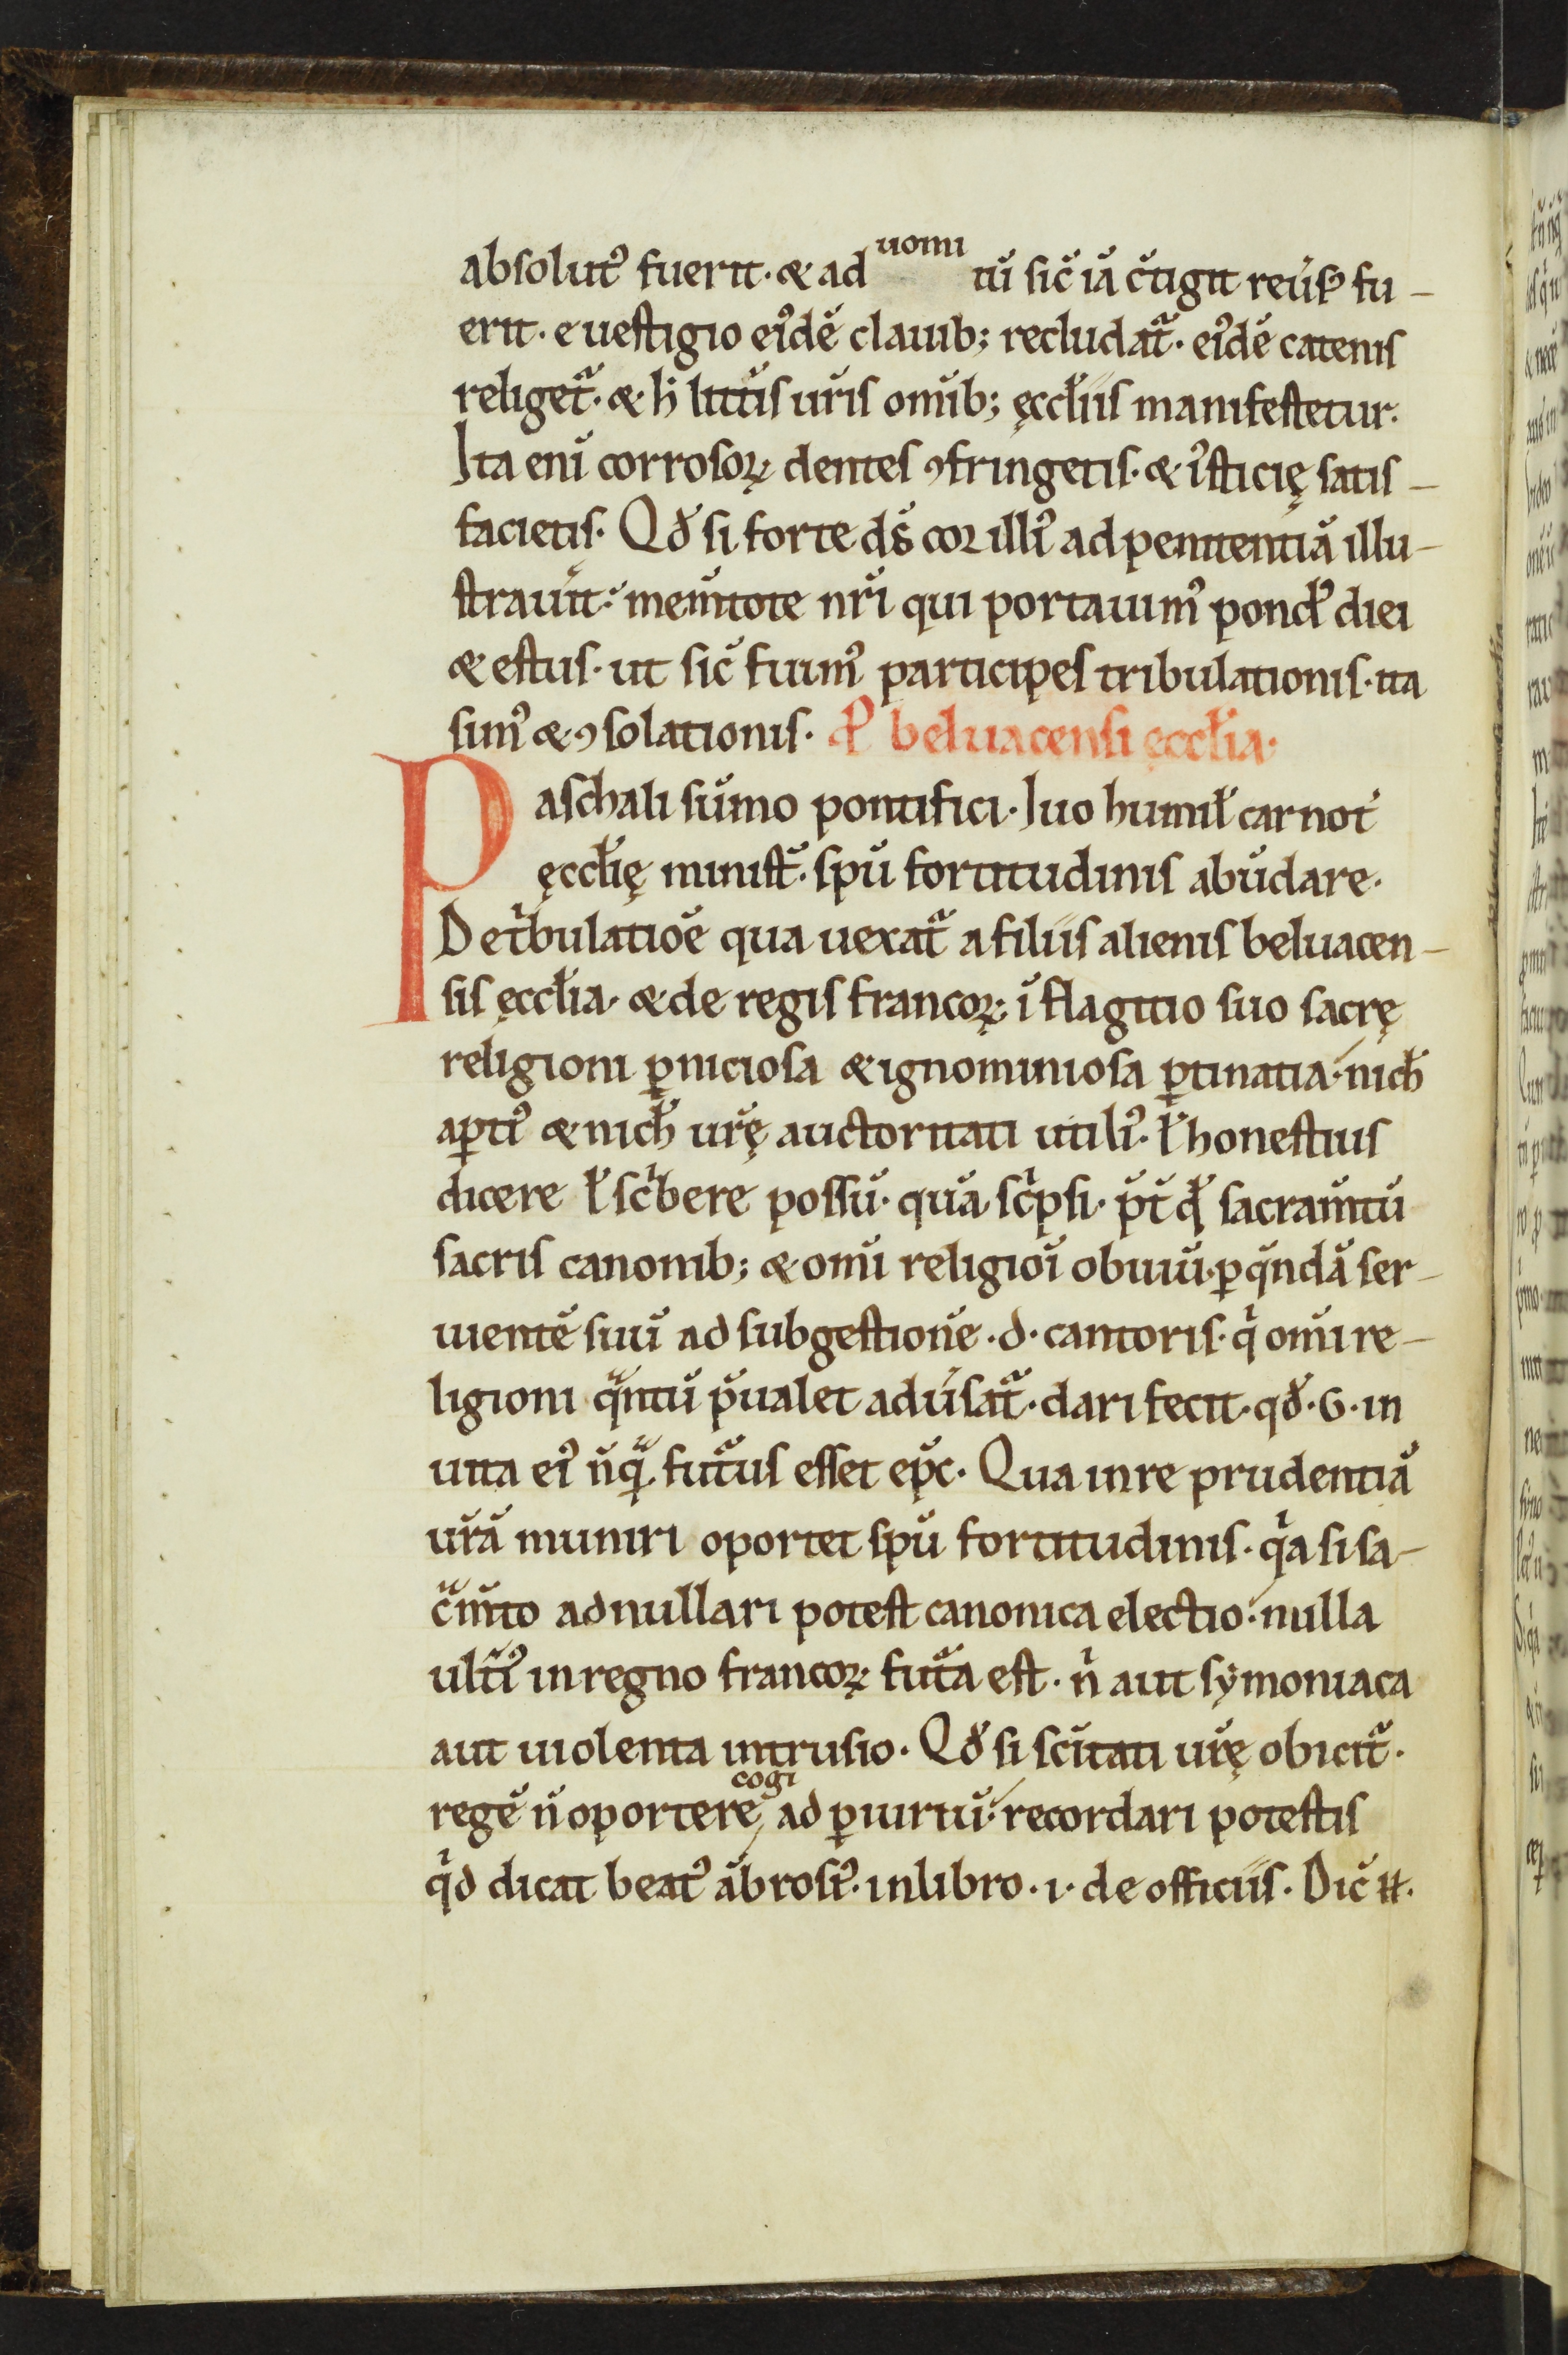 absolut᷒ fuerit· & ad uomi tū sic̄ iā c̄tigit reu͛s᷒ fu-
erit· e uestigio ei᷒dē clauib; recludat᷑· ei᷒dē catenis
religet᷑· & h̄ litt͛is ur̄is om̄ib; ęccl̄iis manifestetur·
Ita eni̅ corrosoꝝ dentes ꝯfringetis· & i᷒sticię satis-
facietis· Qđ si forte d̄s cor illi᷒ ad penitentiā illu-
strau͛it· mem̄tote nr̄i qui portauim᷒ pond᷒ diei
& estus· ut sic̄ fuim᷒ participes tribulationis· ita
sim᷒ & ꝯsolationis· P͛ beluacensi ęccl̄ia·
Paschali sūmo pontifici· Iuo humil̄ carnot͛
ęccl̄ię minist᷑· sp̄u fortitudinis abūdare·
De tͥbulatiōe qua uexat᷑ a filiis alienis beluacen-
sis ęccl̄ia· & de regis francoꝝ i̅ flagitio suo sacrę
religioni ꝑniciosa & ignominiosa ꝑtinatia· nich̄
aꝑti᷒ & nich̄ ur̄ę auctoritati utili᷒· l̄ honestius
dicere l̄ scͥbere possū· quā scͥpsi· p̄t qđ sacram̄tū
sacris canonib; & om̄i religiōi obuiū· ꝑ qͣndā ser-
uientē suū ad subgestionē ·d· cantoris· qͥ om̄i re-
ligioni qͣntū p̄ualet adu͛sat᷑· dari fecit· qđ ·G· in
uita ei᷒ nūqͣ futͫus esset ep̄c· Qua in re prudentiā
ur̄ā muniri oportet sp̄u fortitudinis· qͥa si sa-
cͣm̄to adnullari potest canonica electio· nulla
ult͛i᷒ in regno francoꝝ futͫa est· nͥ aut symoniaca
aut uiolenta intrusio· Qđ si sc̄itati ur̄ę obicit᷑·
regē n̄ oportere cogi ad ꝑiuriū· recordari potestis
qͥd dicat beat᷒ ābrosi᷒· in libro ·i· de officiis· Dic̄ ·n·